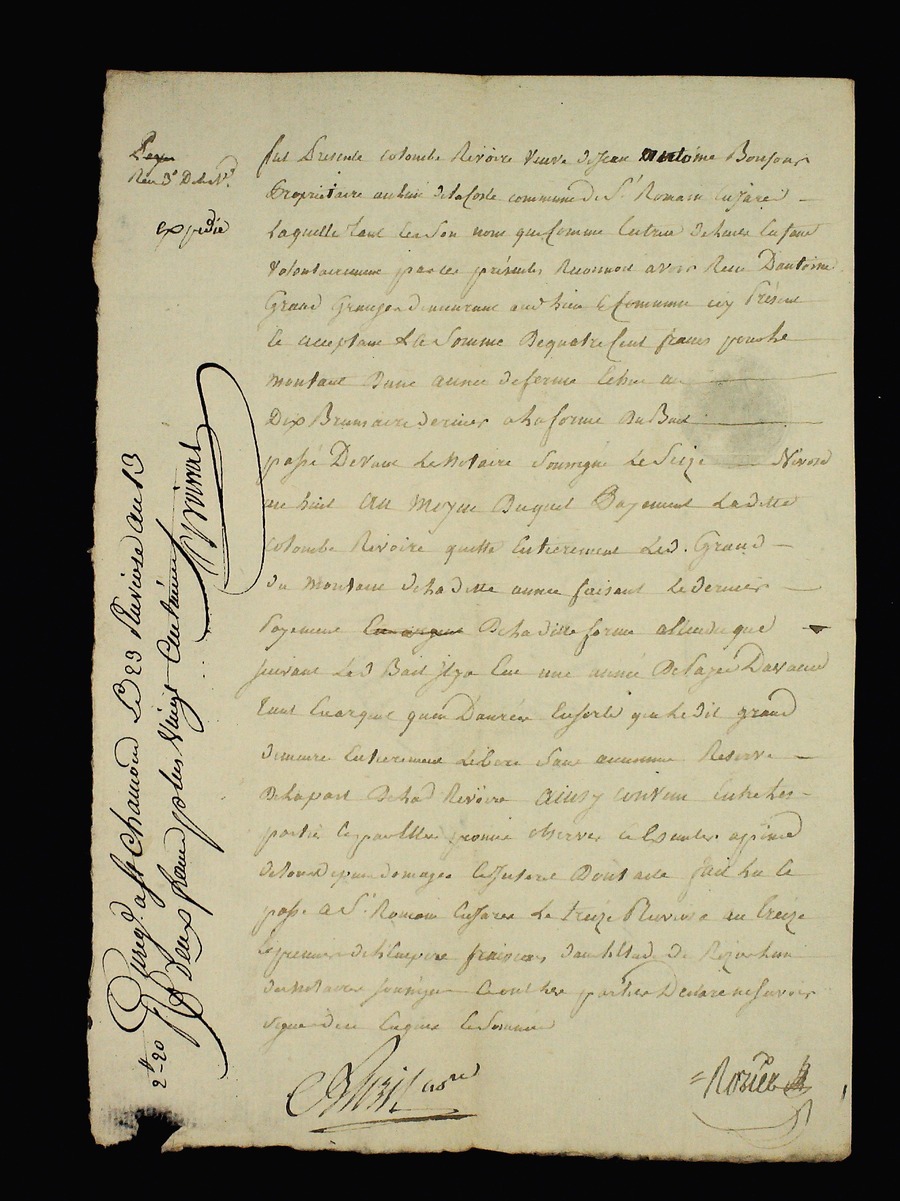 expédié
fut Presente colombe Revoire veuve de Jean antoine Bonjour
Proprietaire au lieu de la Coste commune de St Romain en Jared
Laquelle tant en son nom que comme
volontairement par ces présentes Reconnoit avoir Receu D'antoine
Grand Granger demeurant aud lieu & Commune icy Présent
& acceptant la Somme De quatre Cent francs pour le
montant d'une année de ferme Echue au
Dix Brumaire dernier a la forme Du Bail
passé Devant Le Notaire Soussigné Le Seize Nivose
an huit Au Moyen Duquel Payement Laditte
colombe Revoire quitte Entierement Led. Grand
du montant de laditte année faisant Le dernier
Payement En argent De laditte ferme attendu que
suivant Led Bail il y a Eu une année De Payée D'avance
tant En argent qu'en Danrée En sorte que Le dit grand
demeure Entierement Libere Sans aucunne Reserve
De la part De lad Revoire ainsy convenu Entre les
parties promis observer a peine
de tous depens domages Dont acte fait Lu &
passé a St Romain en Jarez Le treize Pluviose an treize
& premier de L'Empire français
du Notaire soussigné & ont les parties Declaré ne savoir
signer De ce Enquise & Sommée
Rozier
Enregé. a St Chamond Le 23 Pluviose an 13
R deux francs plus Vingt Centimes
2# 20